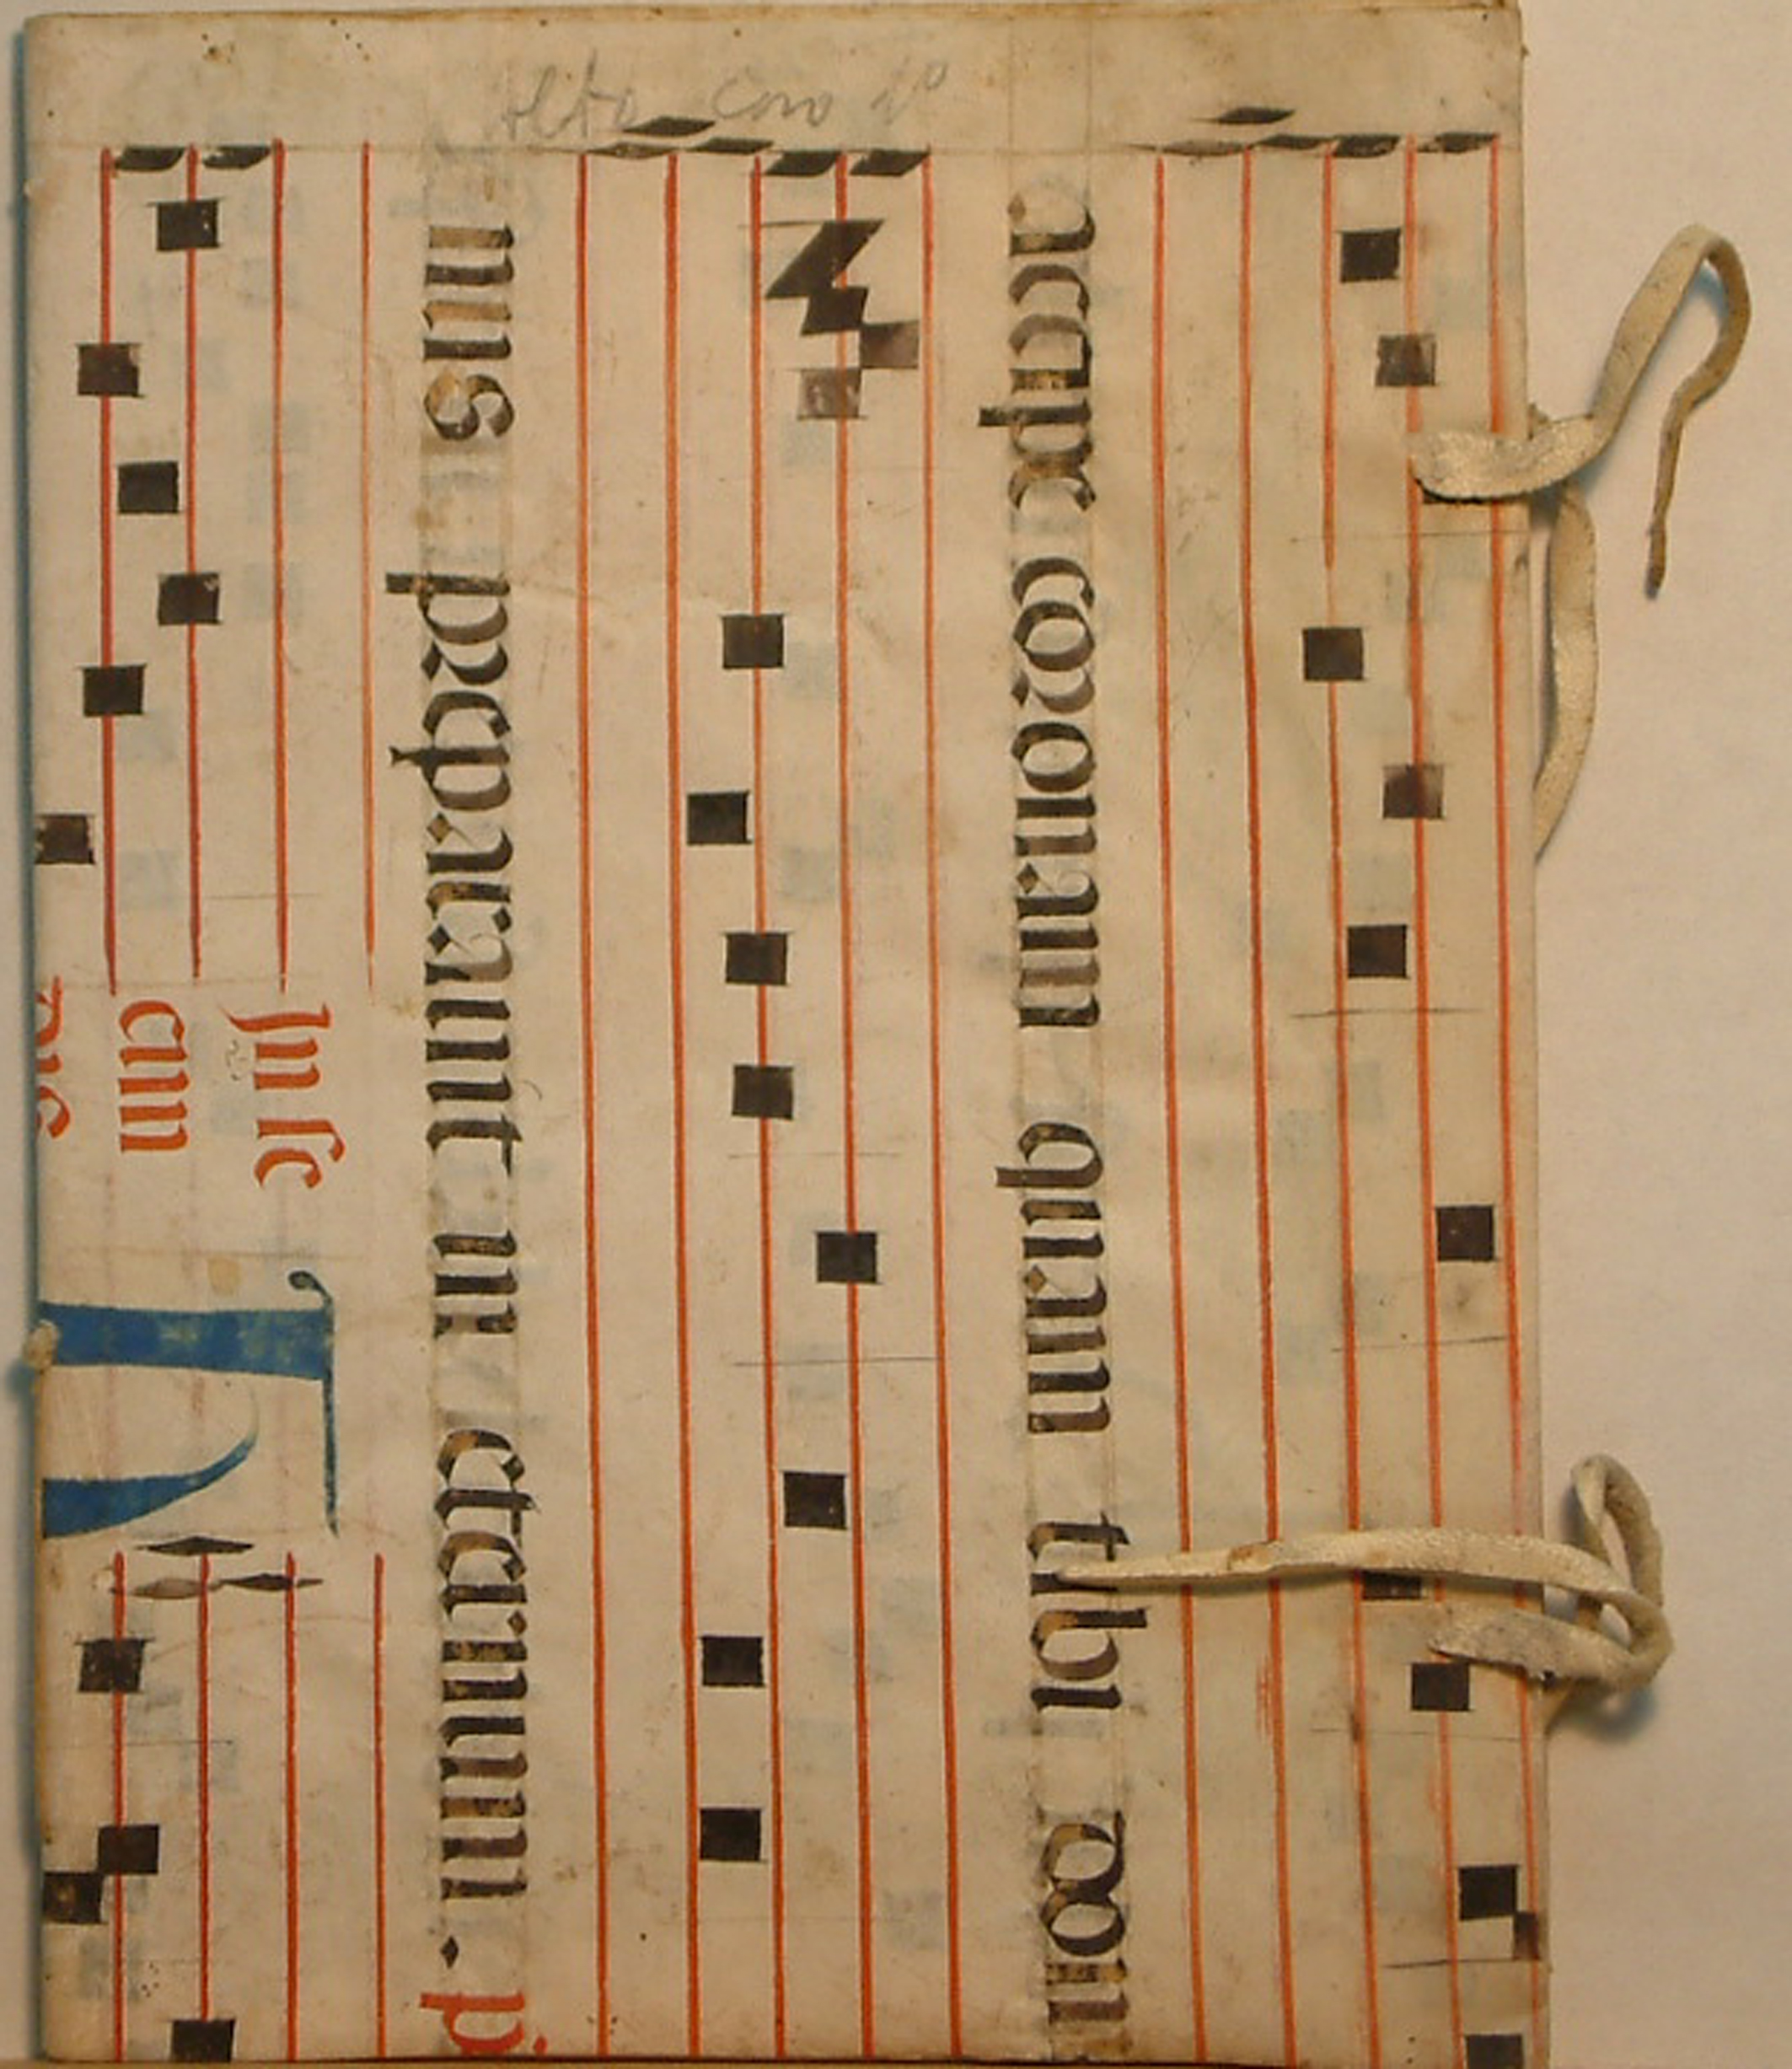 Alto Coro
accipe coronam quam tibi dom
nus preparauit in eternum. p
In se
cun
dis